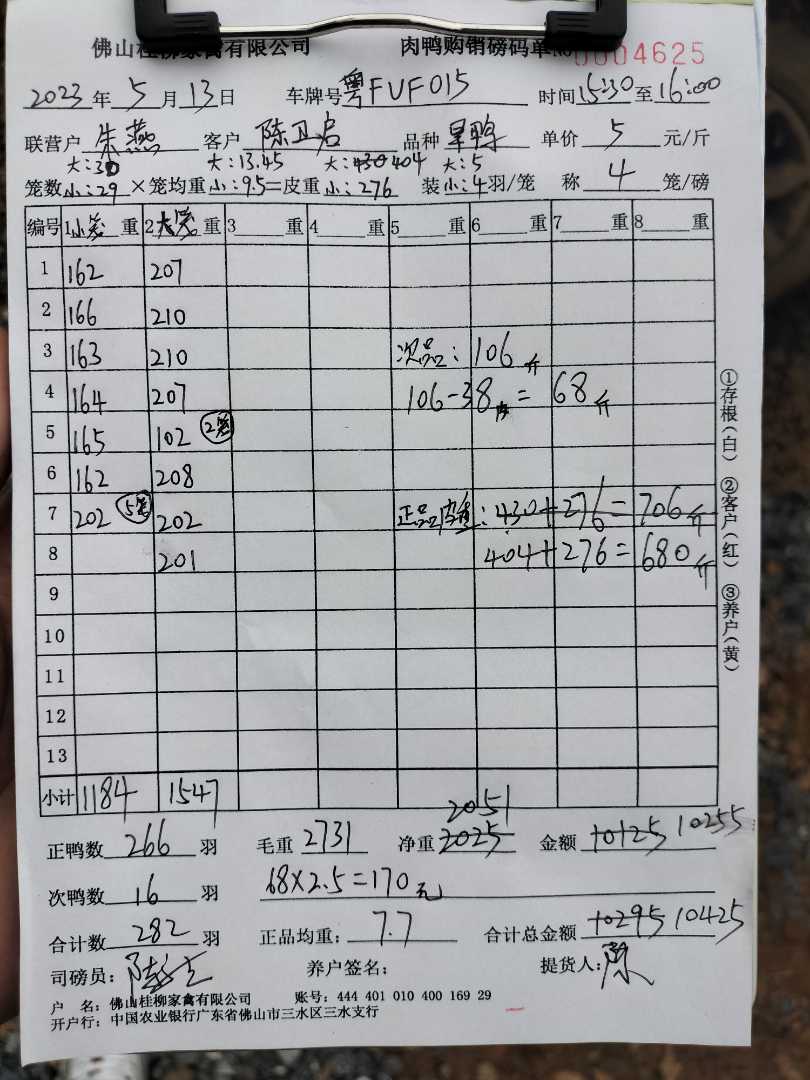 佛山桂柳家禽有限公司 肉鸭购销磅码单 No 0004625
2023年 5月 13日 车牌号 粤FVF015 时间 15:30 至 16:00
联营户 朱燕 客户 陈卫启 品种 旱鸭 单价 5 元/斤
大:30 大:13.45 大:430 404 大:5
笼数 小:29 ×笼均重 小:9.5=皮重 小:276 装 小:4羽/笼 称 4 笼/磅
编号 1小笼重 2大笼重 3重 4重 5重 6重 7重 8重
1 162 207
2 166 210
3 163 210 次品:106斤
4 164 207 106-38=68斤
5 165 102 2笼
6 162 208
7 202 5笼 202 正品皮重:430+276=706斤
8 201 404+276=680斤
9
10
11
12
13
小计 1184 1547
①存根(白) ②客户(红) ③养户(黄)
2051
正鸭数 266 羽 毛重 2731 净重 2025 金额 10125 10255
次鸭数 16 羽 68×2.5=170元
合计数 282 羽 正品均重: 7.7 合计总金额 10295 10425
司磅员: 养户签名: 提货人: 陈
户 名: 佛山桂柳家禽有限公司 账号: 444 401 010 400 169 29
开户行: 中国农业银行广东省佛山市三水区三水支行